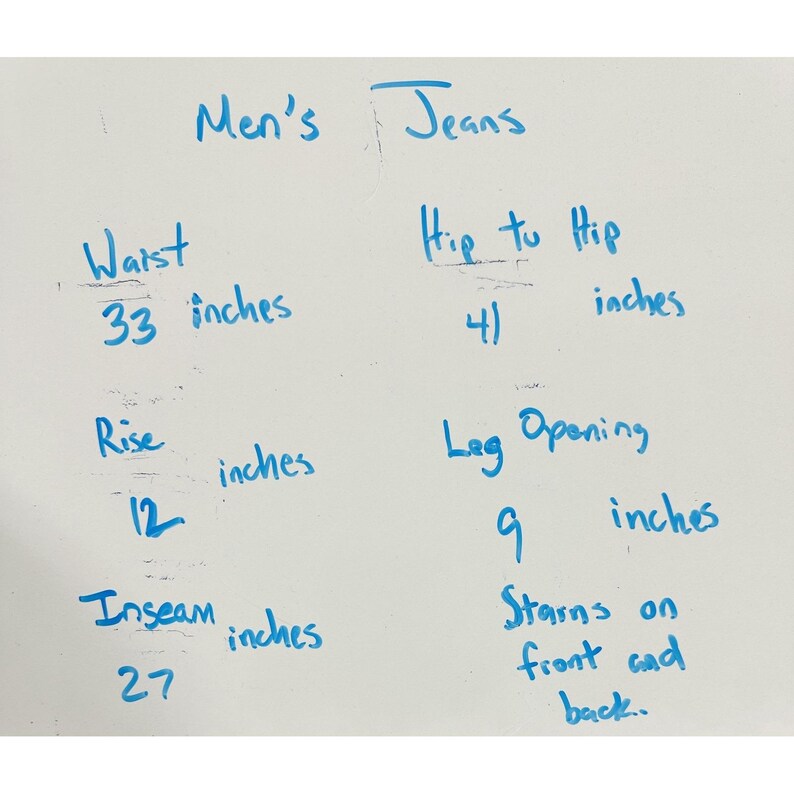 Men's Jeans
Waist
33 inches
Hip to Hip
41 inches
Rise
12 inches
Leg Opening
9 inches
Inseam
27 inches
Stains on
front and
back.